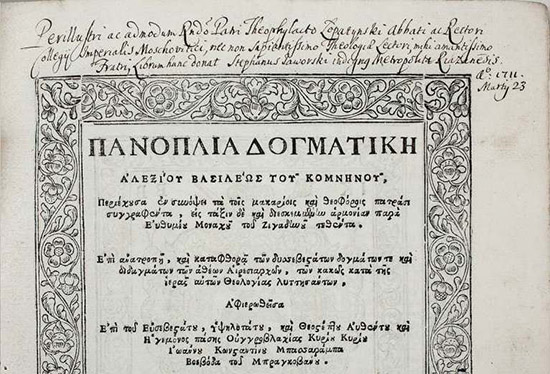 Perillustri ac admodum Rndo Patri Theophylacto Lopatynski Abbati ac Rectori
Collegij Imperialis Moschovitici, nec non Sapientissimo Theologiæ Lectori, mihi amantissimo
Fratri, Librum hunc donat Stephanus Jaworski indignq Metropolita Riazanensis.
Aο. 1711.
Martij 23
ΠΑΝΟΠΛΙΑ ΔΟΓΜΑΤΙΚΗ
ΑΛΕΞΙΟΥ ΒΑΣΙΛΕΩΣ ΤΟΥ ΚΟΜΝΗΝΟΥ,
Περιέχουσα ἐν συνόψει τὰ τοῖς μακαρίοις καὶ Θεοφόροις πατράσι
συγραφέντα, εἰς τάξιν δὲ καὶ διεσκεμμένην ἁρμονίαν παρὰ
Εὐθυμίου Μοναχοῦ τοῦ Ζιγαδινοῦ τεθέντα.
Ἐπὶ ἀνατροπῇ, καὶ καταφθορᾷ τῶν δυσσεβεστάτων δογμάτων τε καὶ
διδαγμάτων τῶν ἀθέων Αἱρεσιαρχῶν, τῶν κακῶς κατὰ τῆς
ἱερᾶς αὐτῶν Θεολογίας λυττησάντων,
Ἀφιερωθεῖσα
Ἐπὶ τοῦ Εὐσεβεστάτου, ὑψηλοτάτου, καὶ Θεοστέπτου Αὐθέντου καὶ
Ἡγεμόνος πάσης Οὐγγροβλαχίας Κυρίου Κυρίου
Ἰωάννου Κωνσταντίνου Μπασαράμπα
Βοεβόδα τοῦ Μπραγκοβάνου.